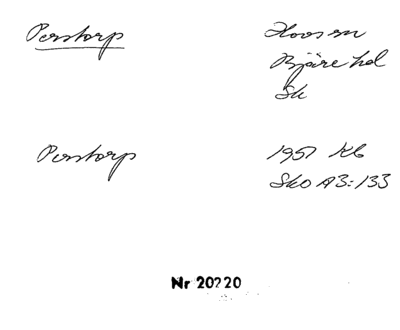 Perstorp Hovs sn
Bjäre hd
Sk
Perstorp 1957 Kb
Sko A3:133
Nr 20220